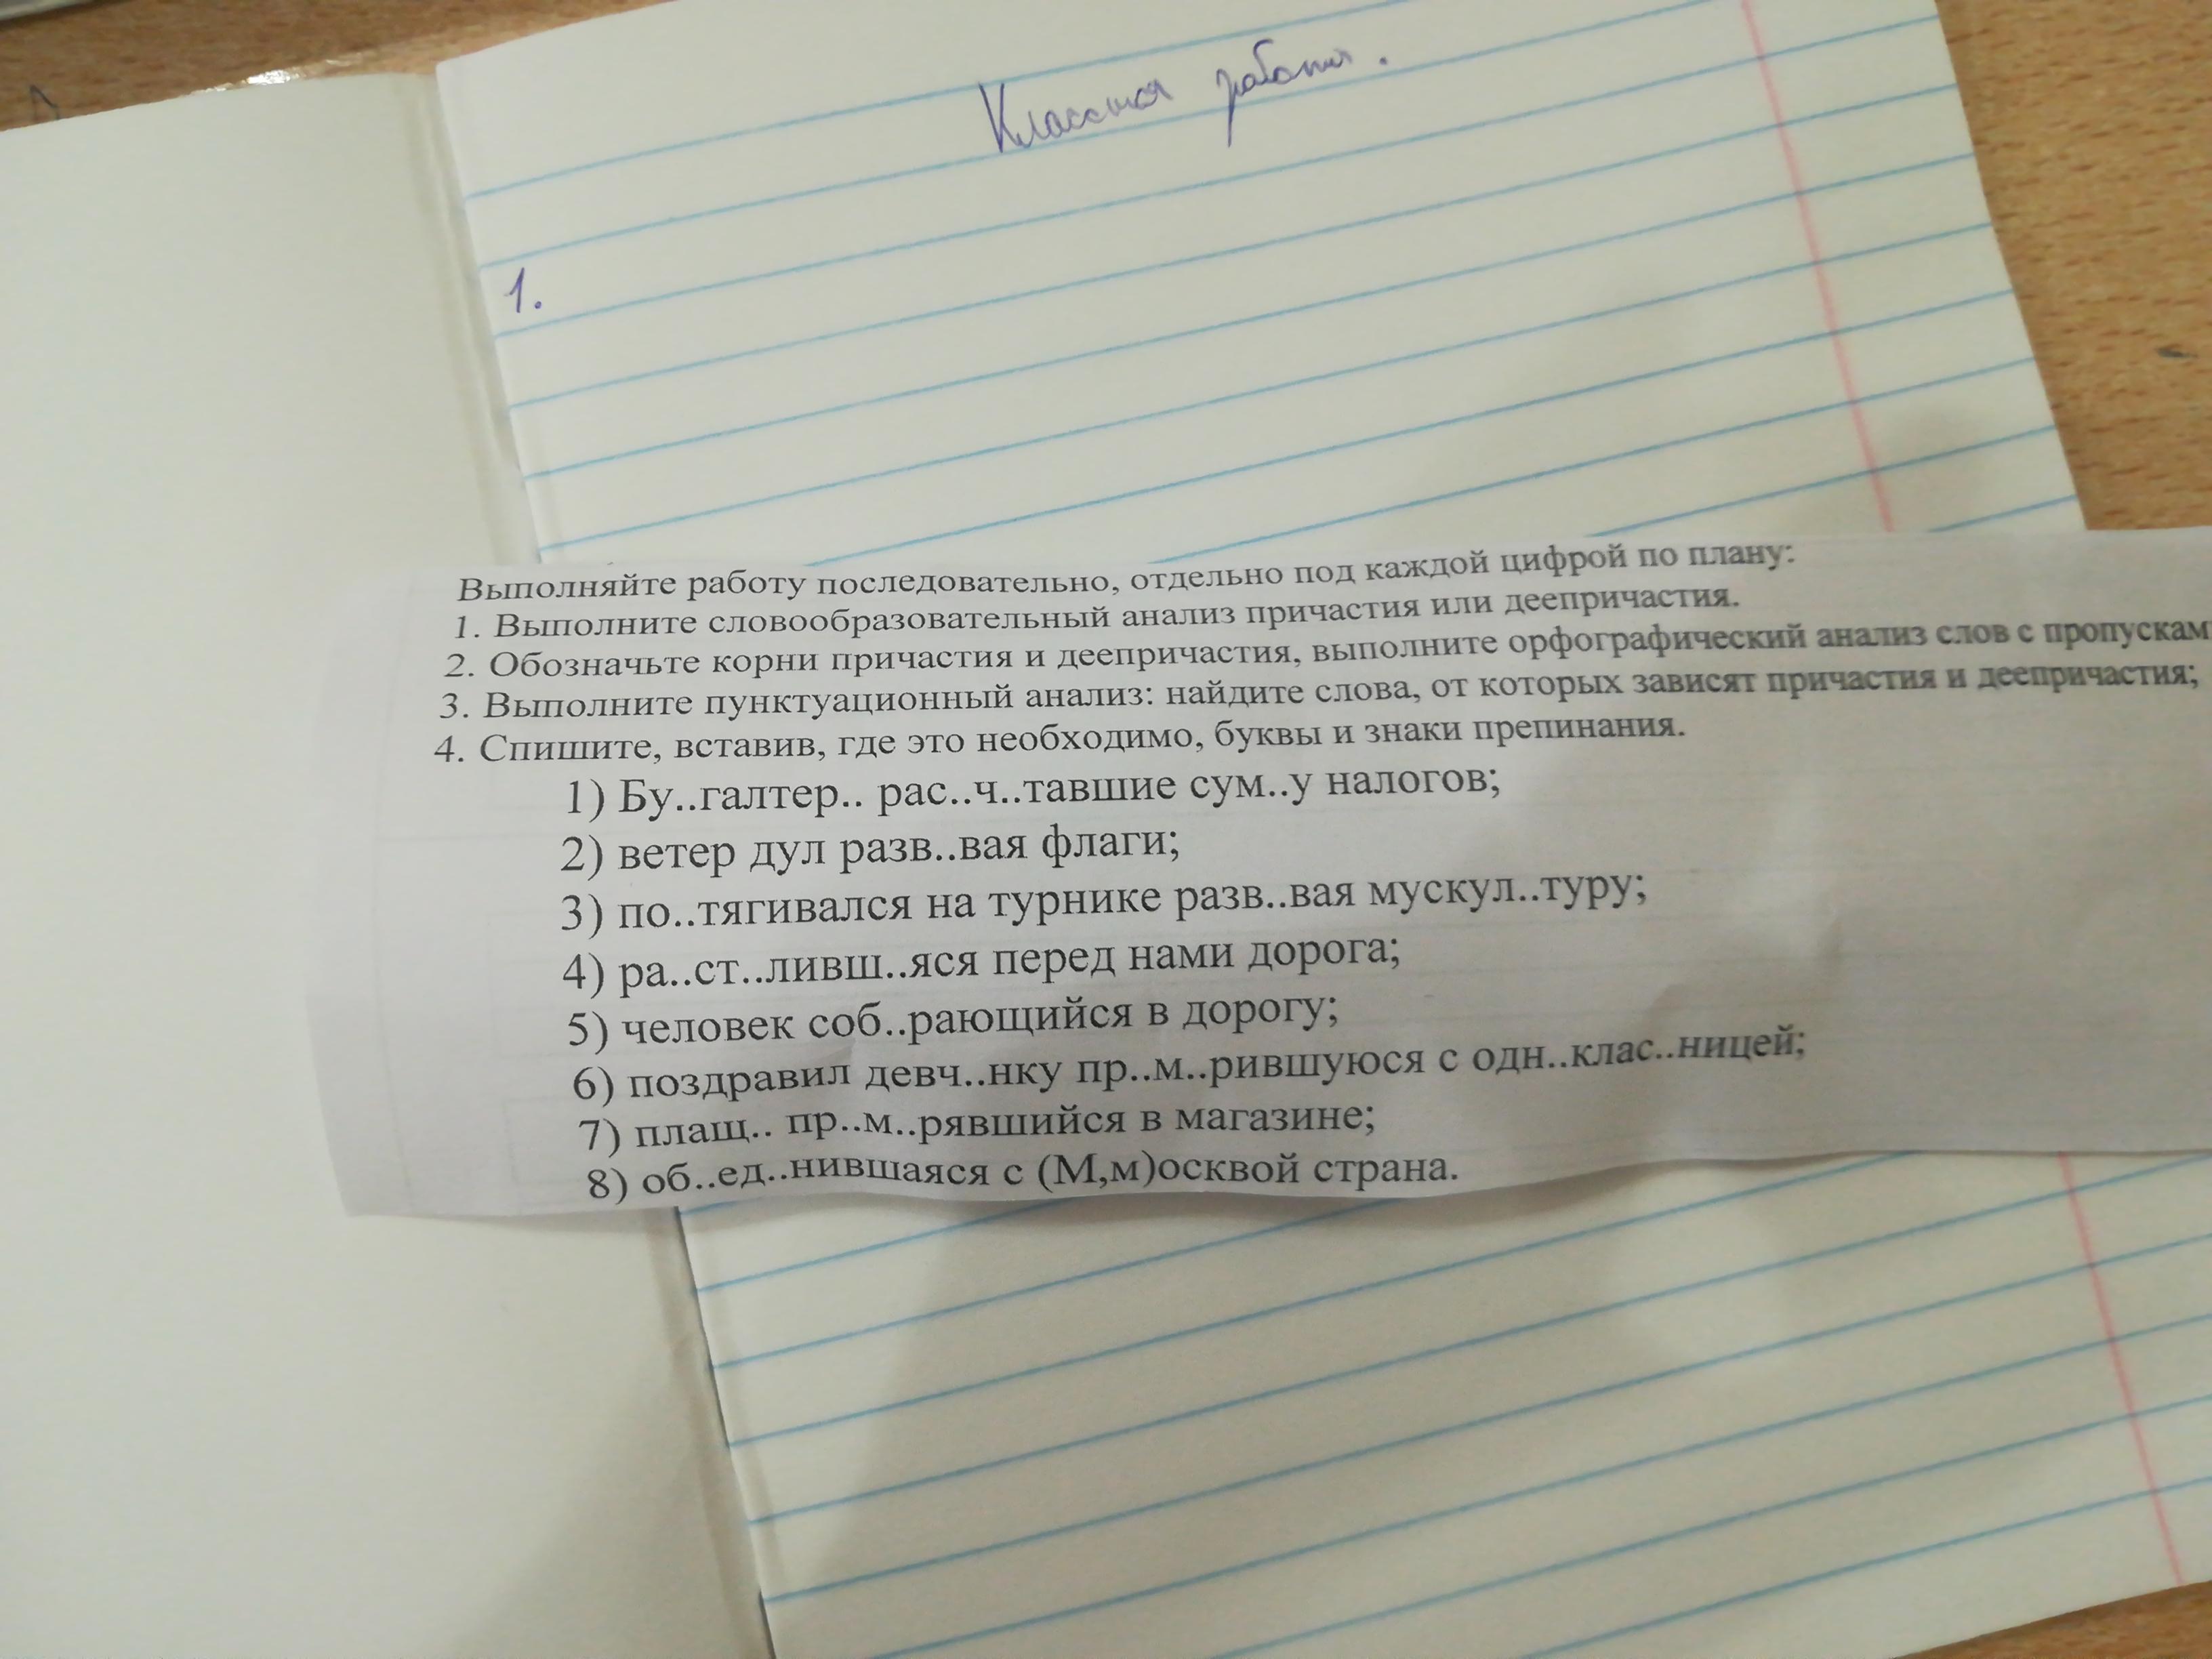 Классная работа.
1.
Выполняйте работу последовательно, отдельно под каждой цифрой по плану:
1. Выполните словообразовательный анализ причастия или деепричастия.
2. Обозначьте корни причастия и деепричастия, выполните орфографический анализ слов с пропускам
3. Выполните пунктуационный анализ: найдите слова, от которых зависят причастия и деепричастия;
4. Спишите, вставив, где это необходимо, буквы и знаки препинания.
1) Бу..галтер.. рас..ч..тавшие сум..у налогов;
2) ветер дул разв..вая флаги;
3) по..тягивался на турнике разв..вая мускул..туру;
4) ра..ст..ливш..яся перед нами дорога;
5) человек соб..рающийся в дорогу;
6) поздравил девч..нку пр..м..рившуюся с одн..клас..ницей;
7) плащ.. пр..м..рявшийся в магазине;
8) об..ед..нившаяся с (М,м)осквой страна.